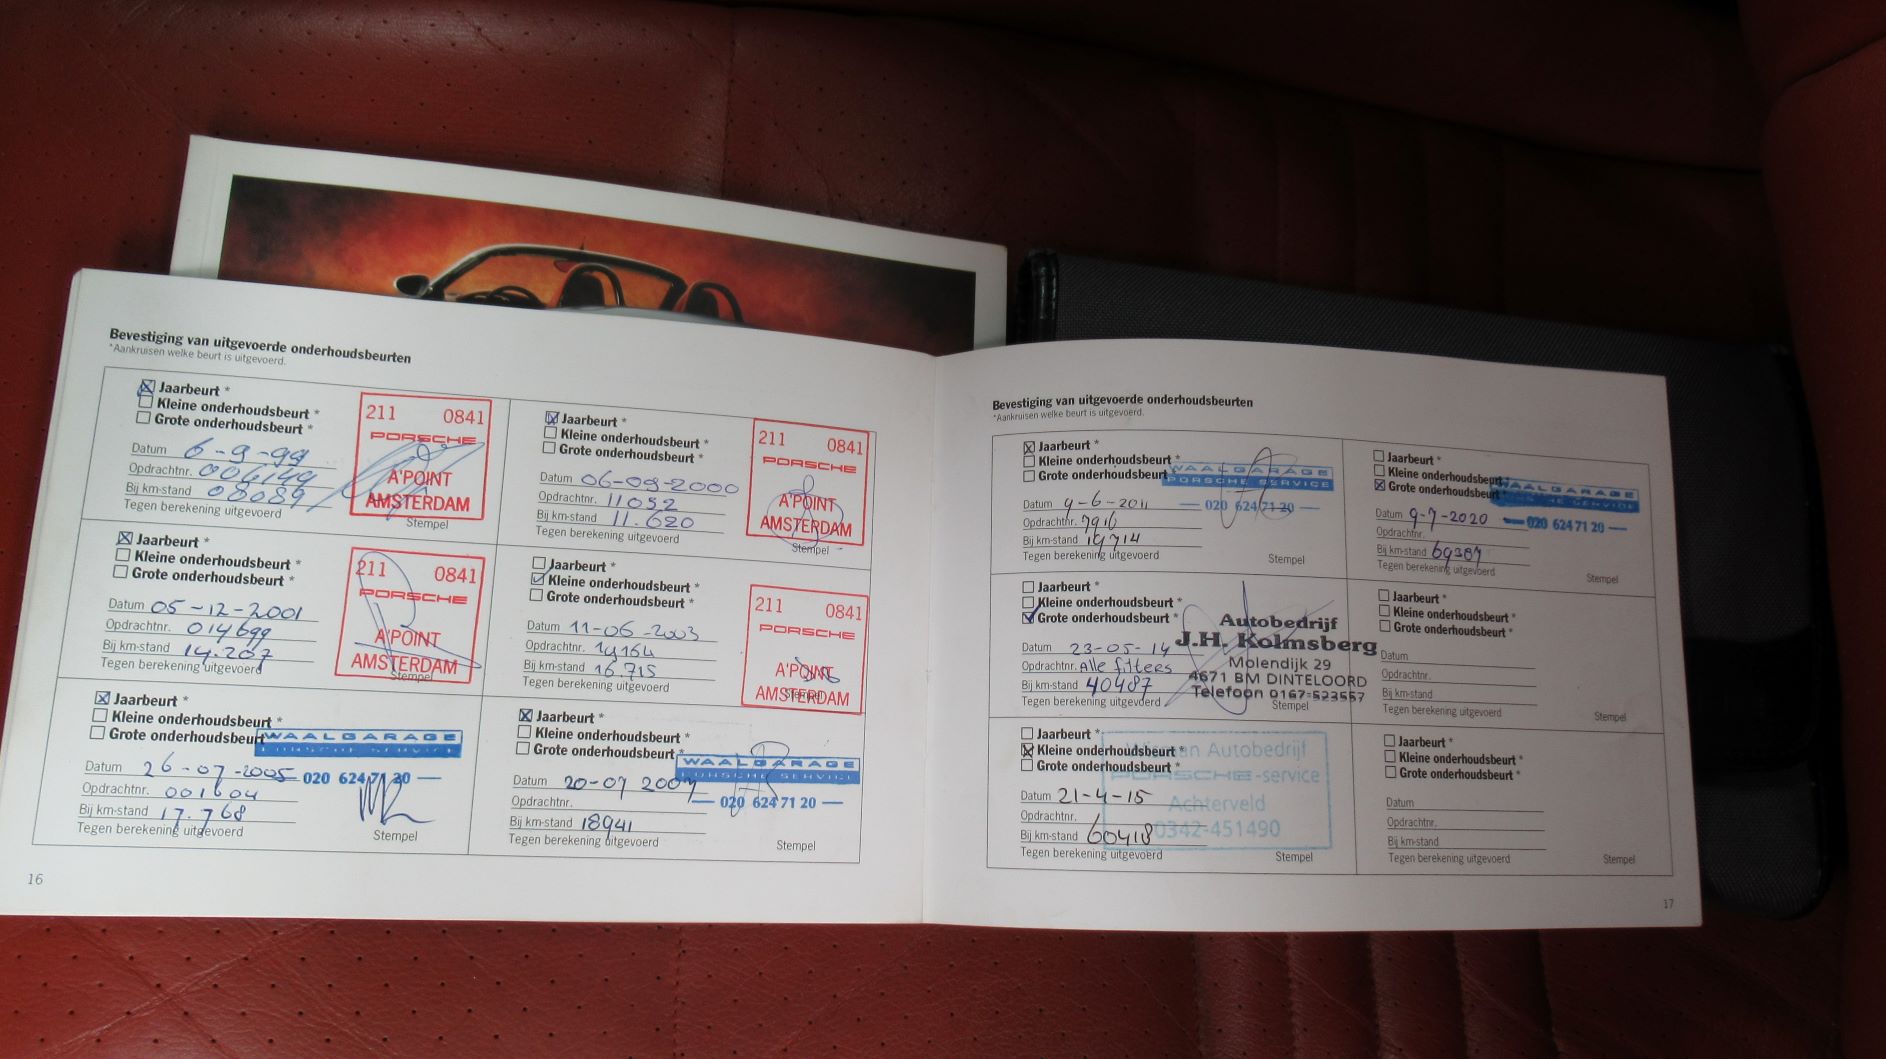 Bevestiging van uitgevoerde onderhoudsbeurten
*Aankruisen welke beurt is uitgevoerd.
Jaarbeurt *
Kleine onderhoudsbeurt *
Grote onderhoudsbeurt *
Datum 6-9-99
Opdrachtnr. 006149
Bij km-stand 08089
Tegen berekening uitgevoerd
211 0841
PORSCHE
A'POINT
AMSTERDAM
Stempel
Jaarbeurt *
Kleine onderhoudsbeurt *
Grote onderhoudsbeurt *
Datum 06-09-2000
Opdrachtnr. 11052
Bij km-stand 11.620
Tegen berekening uitgevoerd
211 0841
PORSCHE
A'POINT
AMSTERDAM
Stempel
Jaarbeurt *
Kleine onderhoudsbeurt *
Grote onderhoudsbeurt *
Datum 05-12-2001
Opdrachtnr. 014699
Bij km-stand 14.207
Tegen berekening uitgevoerd
211 0841
PORSCHE
A'POINT
AMSTERDAM
Stempel
Jaarbeurt *
Kleine onderhoudsbeurt *
Grote onderhoudsbeurt *
Datum 11-06-2003
Opdrachtnr. 19164
Bij km-stand 16.715
Tegen berekening uitgevoerd
211 0841
PORSCHE
A'POINT
AMSTERDAM
Stempel
Jaarbeurt *
Kleine onderhoudsbeurt *
Grote onderhoudsbeurt
Datum 26-07-2005
Opdrachtnr. 001604
Bij km-stand 17.768
Tegen berekening uitgevoerd
WAALGARAGE
PORSCHE SERVICE
020 624 71 20
Stempel
Jaarbeurt *
Kleine onderhoudsbeurt *
Grote onderhoudsbeurt *
Datum 20-07 2007
Opdrachtnr.
Bij km-stand 18941
Tegen berekening uitgevoerd
WAALGARAGE
PORSCHE SERVICE
020 624 71 20
Stempel
16
Bevestiging van uitgevoerde onderhoudsbeurten
*Aankruisen welke beurt is uitgevoerd.
Jaarbeurt *
Kleine onderhoudsbeurt *
Grote onderhoudsbeurt
Datum 9-6-2011
Opdrachtnr. 7916
Bij km-stand 19714
Tegen berekening uitgevoerd
WAALGARAGE
PORSCHE SERVICE
020 624 71 20
Stempel
Jaarbeurt *
Kleine onderhoudsbeurt
Grote onderhoudsbeurt *
Datum 9-7-2020
Opdrachtnr.
Bij km-stand 69387
Tegen berekening uitgevoerd
WAALGARAGE
PORSCHE SERVICE
020 624 71 20
Stempel
Jaarbeurt *
Kleine onderhoudsbeurt *
Grote onderhoudsbeurt *
Datum 23-05-14
Opdrachtnr. Alle filters
Bij km-stand 40487
Tegen berekening uitgevoerd
Autobedrijf
J.H. Kolmsberg
Molendijk 29
4671 BM DINTELOORD
Telefoon 0167-523557
Stempel
Jaarbeurt *
Kleine onderhoudsbeurt *
Grote onderhoudsbeurt *
Datum
Opdrachtnr.
Bij km-stand
Tegen berekening uitgevoerd
Stempel
Jaarbeurt *
Kleine onderhoudsbeurt *
Grote onderhoudsbeurt *
Datum 21-4-15
Opdrachtnr.
Bij km-stand 60418
Tegen berekening uitgevoerd
Autobedrijf
PORSCHE-service
Achterveld
0342-451490
Stempel
Jaarbeurt *
Kleine onderhoudsbeurt *
Grote onderhoudsbeurt *
Datum
Opdrachtnr.
Bij km-stand
Tegen berekening uitgevoerd
Stempel
17